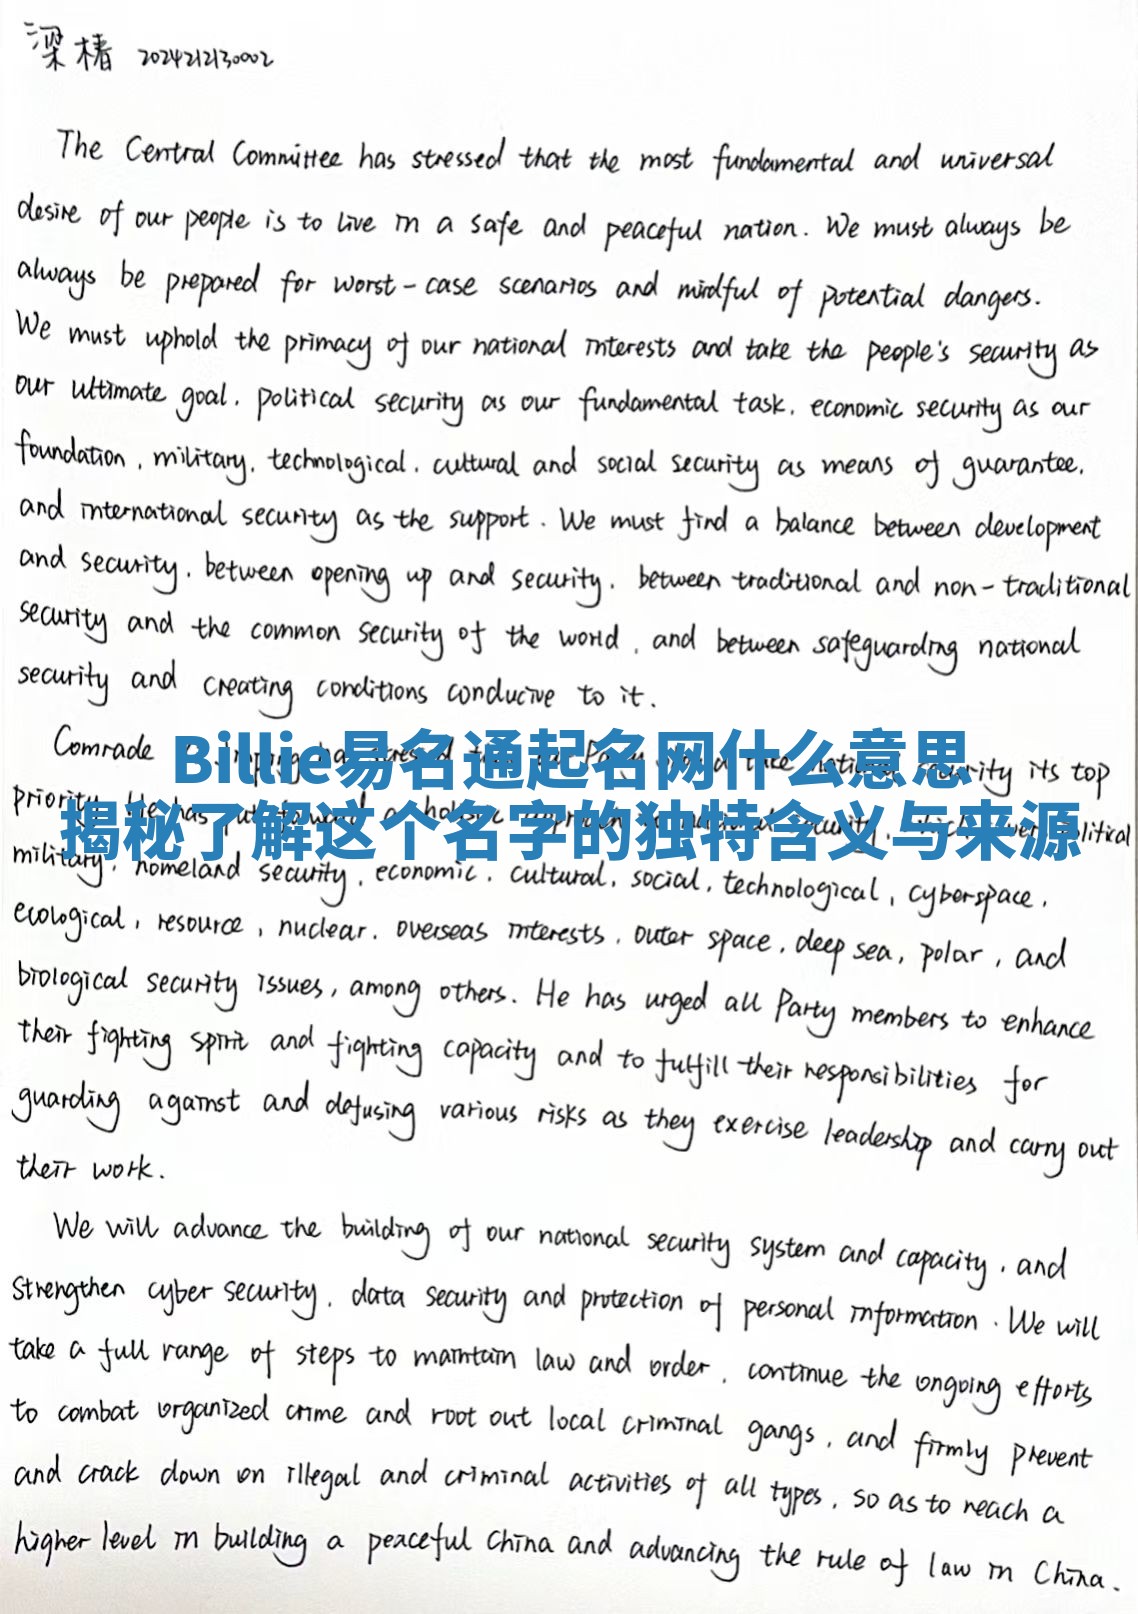 梁椿 2024212130002
The Central Committee has stressed that the most fundamental and universal
desire of our people is to live in a safe and peaceful nation. We must always be
always be prepared for worst-case scenarios and mindful of potential dangers.
We must uphold the primacy of our national interests and take the people's security as
our ultimate goal, political security as our fundamental task, economic security as our
foundation, military, technological, cultural and social security as means of guarantee,
and international security as the support. We must find a balance between development
and security, between opening up and security, between traditional and non-traditional
security and the common security of the world, and between safeguarding national
security and creating conditions conducive to it.
Comrade its top
Billie易名通起名网什么意思
priority. He has
揭秘了解这个名字的独特含义与来源
military, homeland security, economic, cultural, social, technological, cyberspace,
ecological, resource, nuclear, overseas interests, outer space, deep sea, polar, and
biological security issues, among others. He has urged all Party members to enhance
their fighting spirit and fighting capacity and to fulfill their responsibilities for
guarding against and defusing various risks as they exercise leadership and carry out
their work.
We will advance the building of our national security system and capacity, and
strengthen cyber security, data security and protection of personal information. We will
take a full range of steps to maintain law and order, continue the ongoing efforts
to combat organized crime and root out local criminal gangs, and firmly prevent
and crack down on illegal and criminal activities of all types, so as to reach a
higher level in building a peaceful China and advancing the rule of law in China.